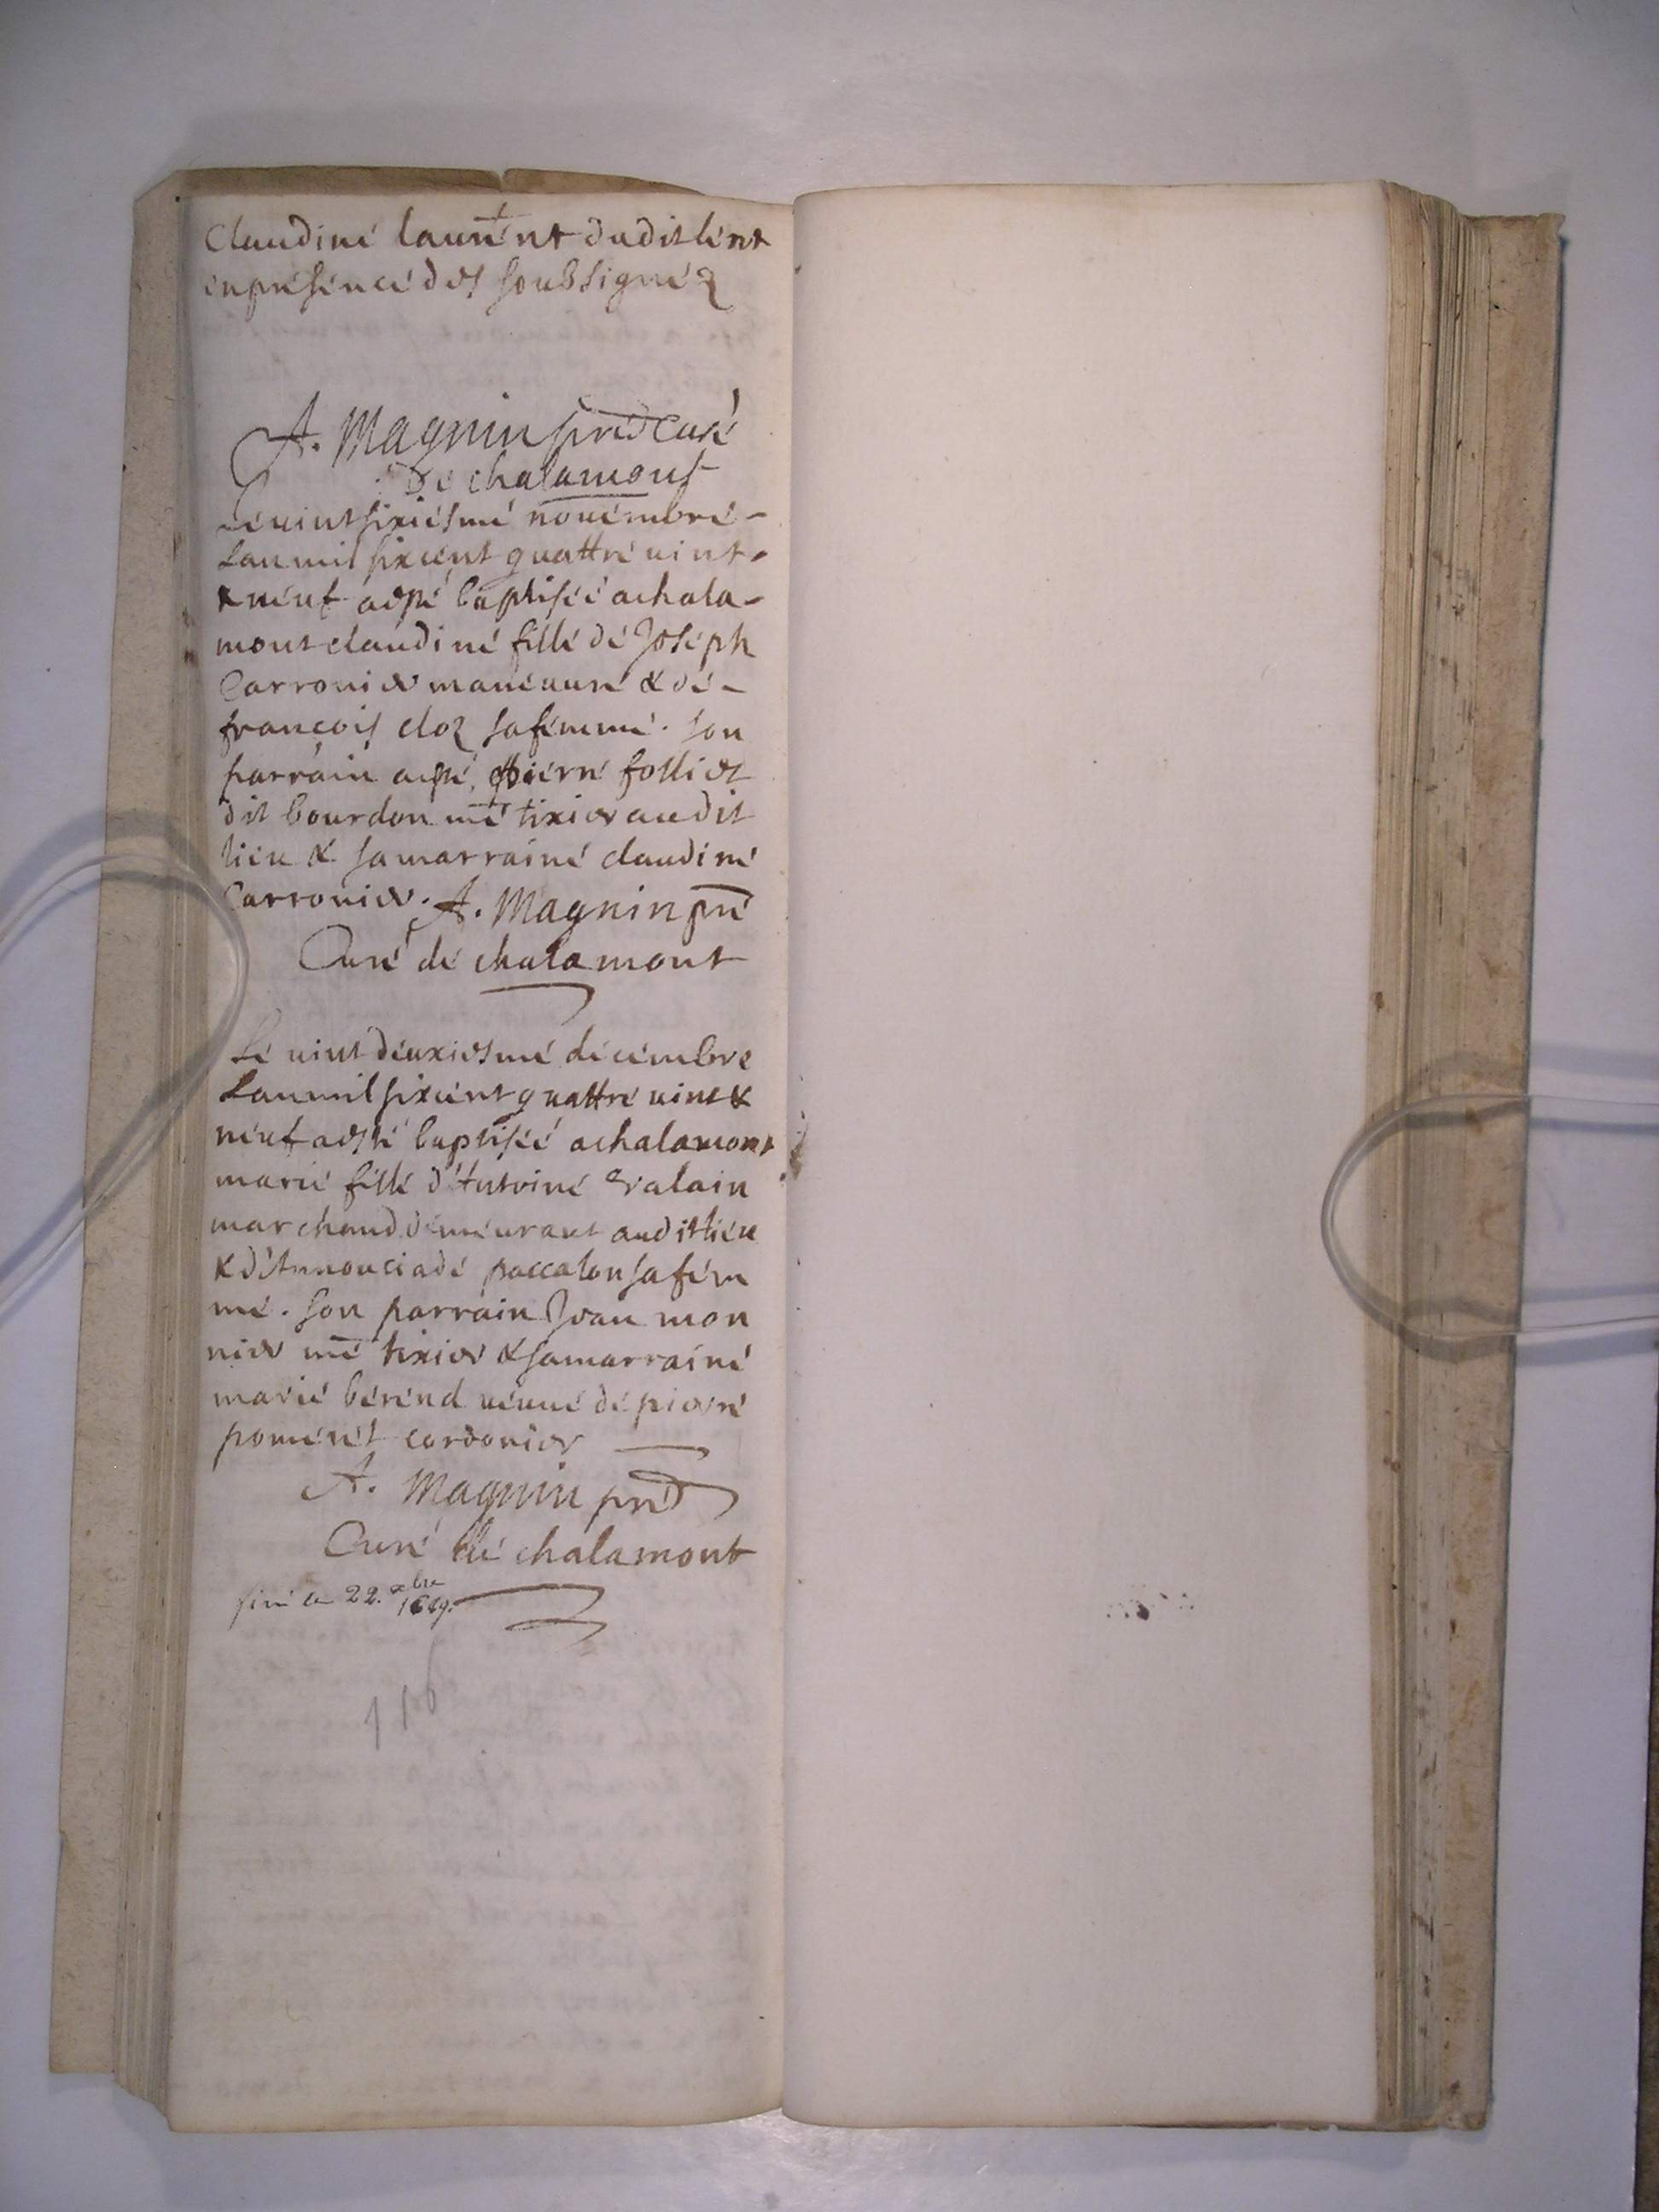 Claudine laurent dudit lieu
en presence des soubsignez
A. Magnin pred Curé
de chalamont
Le vint sixiesme novembre -
Lan mil six cent quattre vint -
& neuf a esté baptisée a chala-
mont claudine fille de Joseph
Carronier maneuure & de -
françois cloz sa femme. son
parrain a esté pierre folliet
dit bourdon me tixier audit
lieu & sa marraine claudine
Carronier. A. Magnin pre
Curé de chalamont
Le vint deuxiesme decembre
Lan mil six cent quattre vint &
neuf a esté baptisée a chalamont
marie fille d'Antoine valain
marchand demeurant audit lieu
& d'Annonciade paccalon sa fem
me. son parrain Jean mon
nier me tixier & sa marraine
marie berend veuue de pierre
poment cordonier
A. Magnin pre
Curé de chalamont
fini le 22. xbre 1689.
116